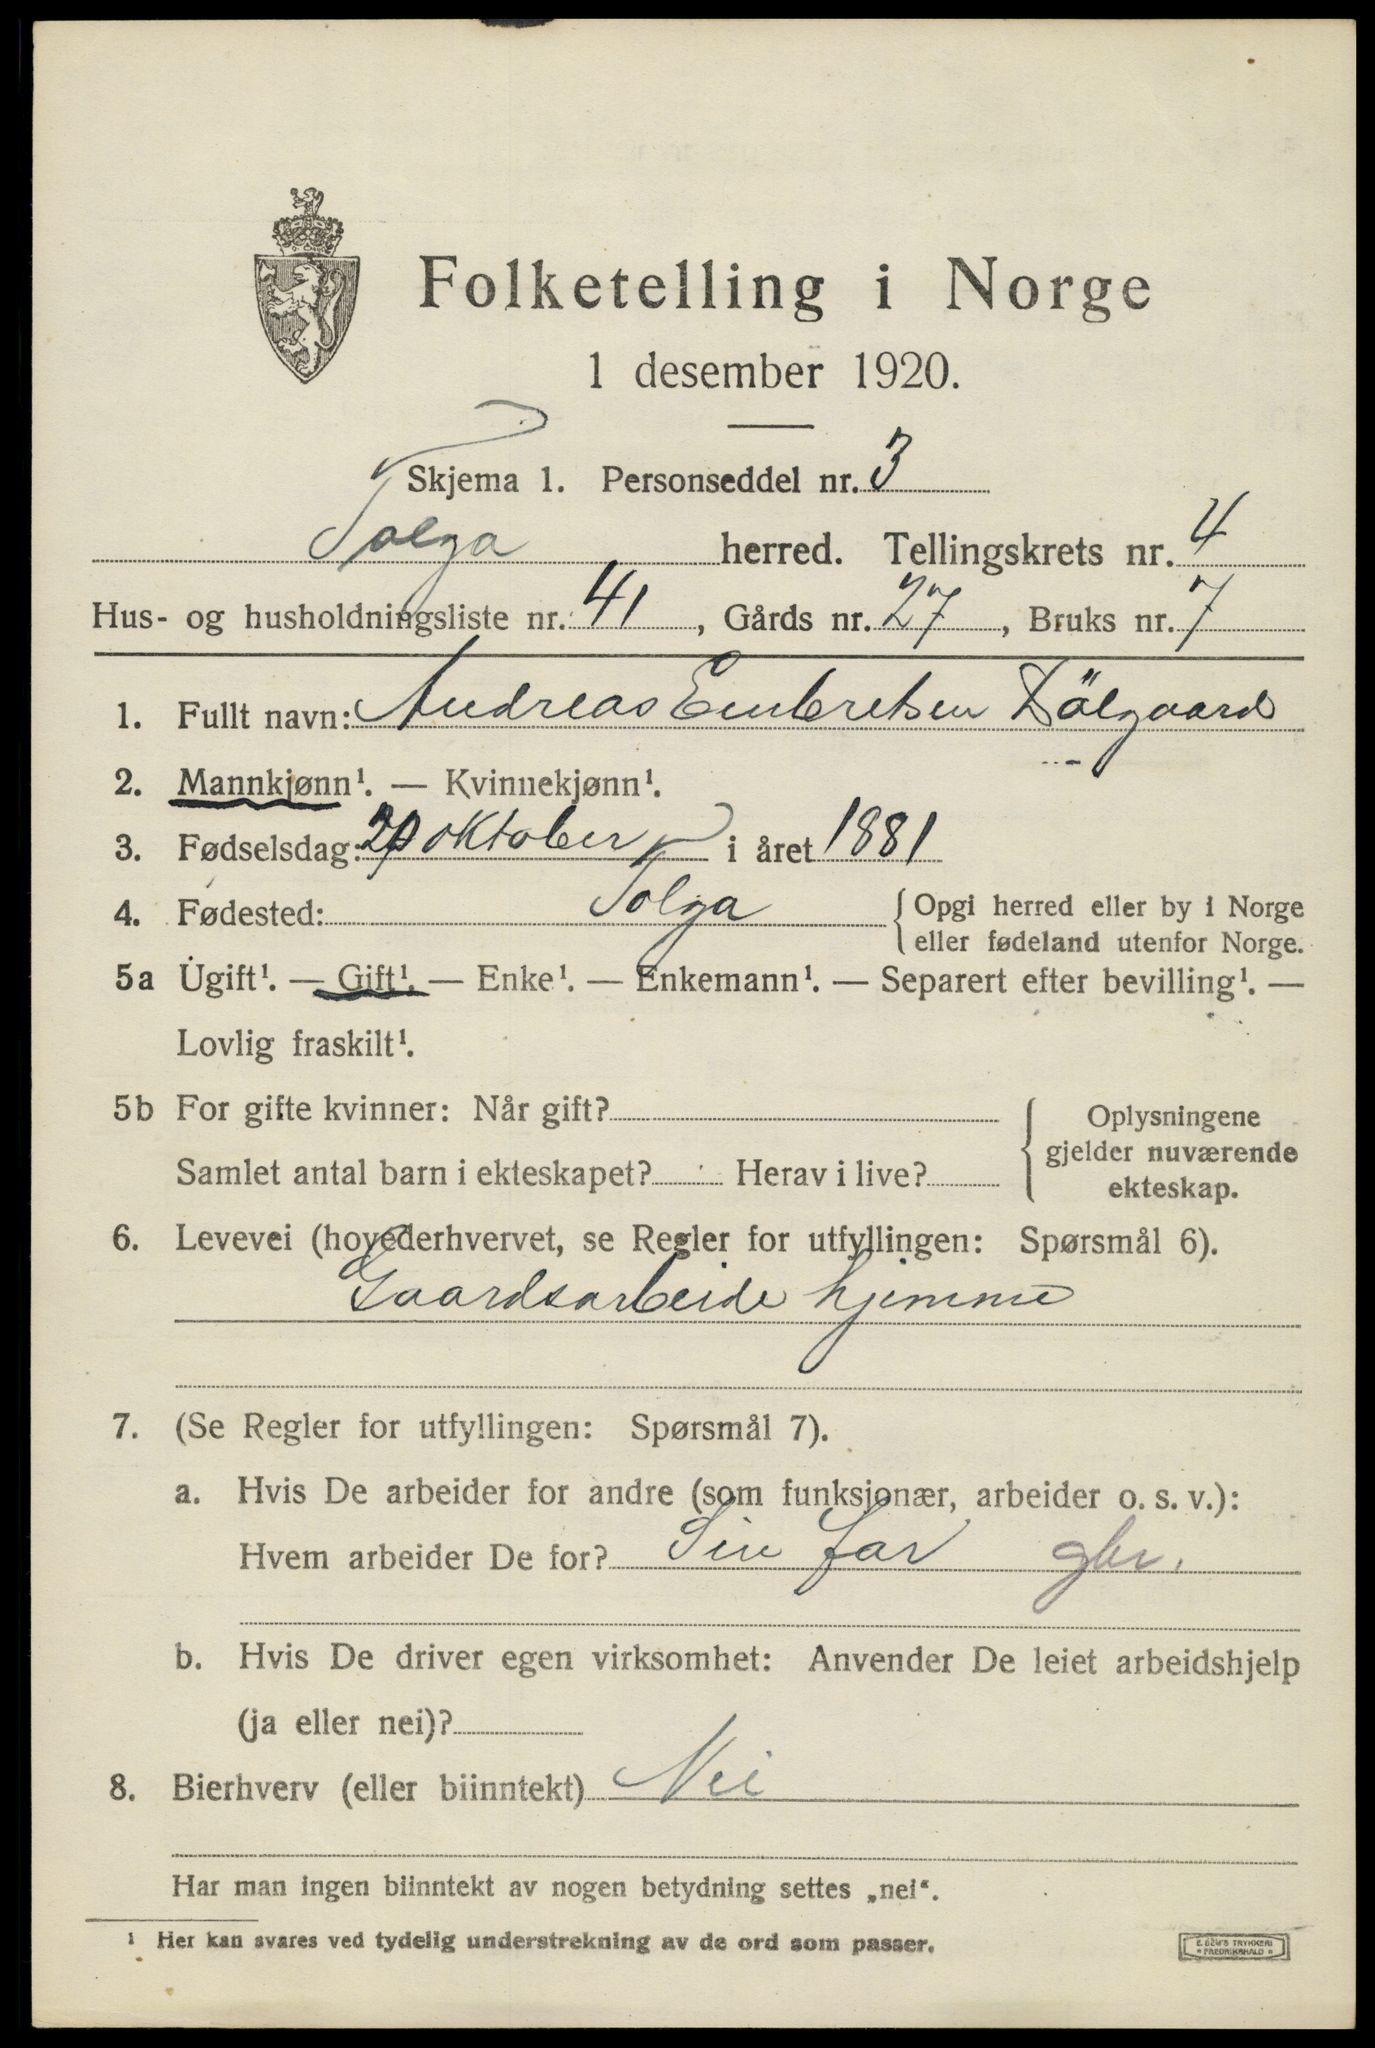 Folketelling i Norge
1 desember 1920.
Skjema 1. Personseddel nr. 3
Tolga herred. Tellingskrets nr. 4
Hus- og husholdningsliste nr. 41, Gårds nr. 27, Bruks nr. 7
1. Fullt navn: Andreas Embretsen Dölgaard
2. Mannkjønn¹. — Kvinnekjønn¹.
3. Fødselsdag: oktober i året 1881
4. Fødested: Tolga {Opgi herred eller by i Norge
eller fødeland utenfor Norge.
5a Ugift¹. — Gift¹. — Enke¹. — Enkemann¹. — Separert efter bevilling¹. —
Lovlig fraskilt¹.
5b For gifte kvinner: Når gift? {Oplysningene
gjelder nuværende
Samlet antal barn i ekteskapet? Herav i live?
ekteskap.
6. Levevei (hovederhvervet, se Regler for utfyllingen: Spørsmål 6).
Gaardsarbeide hjemme
7. (Se Regler for utfyllingen: Spørsmål 7).
a. Hvis De arbeider for andre (som funksjonær, arbeider o. s. v.):
Hvem arbeider De for? Sin far gbr.
b. Hvis De driver egen virksomhet: Anvender De leiet arbeidshjelp
(ja eller nei)?
8. Bierhverv (eller biinntekt) Nei
Har man ingen biinntekt av nogen betydning settes „nei“.
¹ Her kan svares ved tydelig understrekning av de ord som passer.
E. SEM'S TRYKKERI
* FREDRIKSHALD *